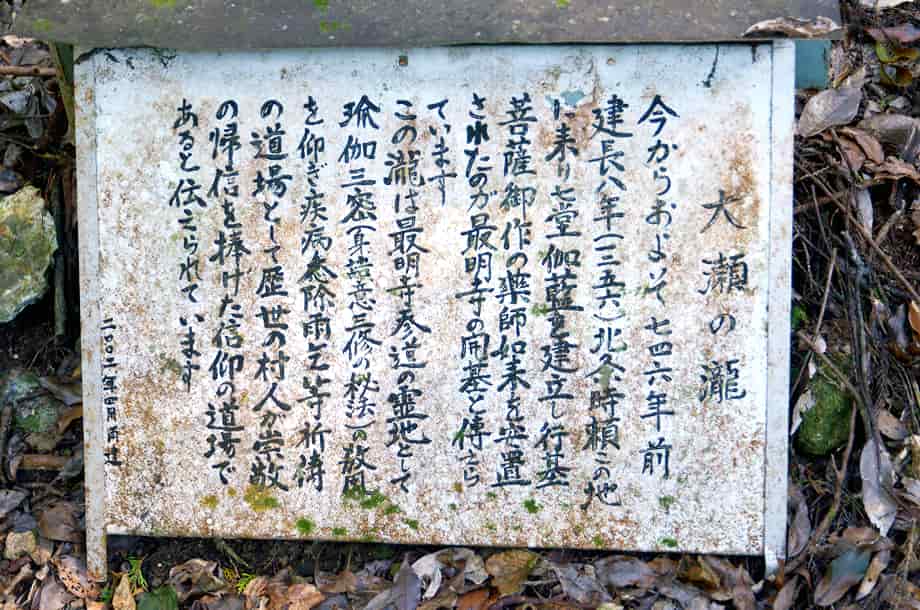 大瀬の瀧
今からおよそ七四六年前
建長八年(一二五六)北条時頼この地
に来り七堂伽藍を建立し行基
菩薩御作の薬師如来を安置
されたのが最明寺の開基と傳えら
ています
この瀧は最明寺参道の霊地として
瑜伽三密(身語意三修の秘法)の教風
を仰ぎ疾病参除雨乞等祈祷
の道場として歴世の村人が崇敬
の帰信を捧げた信仰の道場で
あると伝えられています
二〇〇二年四月